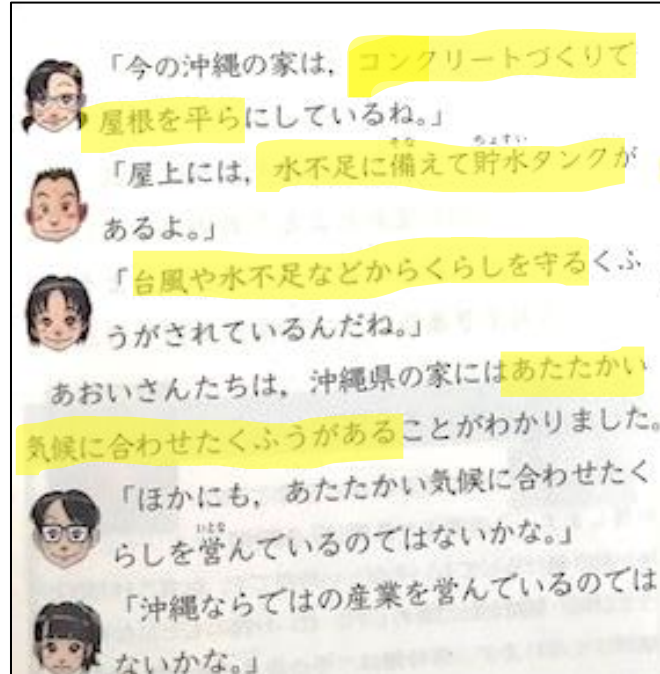 「今の沖縄の家は，コンクリートづくりで
屋根を平らにしているね。」
「屋上には，水不足に備えて貯水タンクが
あるよ。」
「台風や水不足などからくらしを守るくふ
うがされているんだね。」
あおいさんたちは，沖縄県の家にはあたたかい
気候に合わせたくふうがあることがわかりました。
「ほかにも，あたたかい気候に合わせたく
らしを営んでいるのではないかな。」
「沖縄ならではの産業を営んでいるのでは
ないかな。」